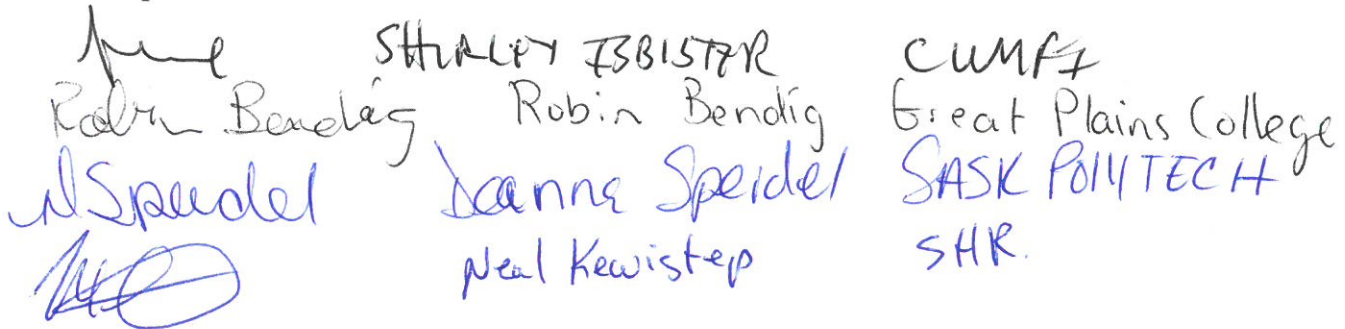 SHIRLEY ISBISTER CUMFI
Robin Bendig Robin Bendig Great Plains College
D Speidel Deanna Speidel SASK POLYTECH
Neal Kewistep SHR.